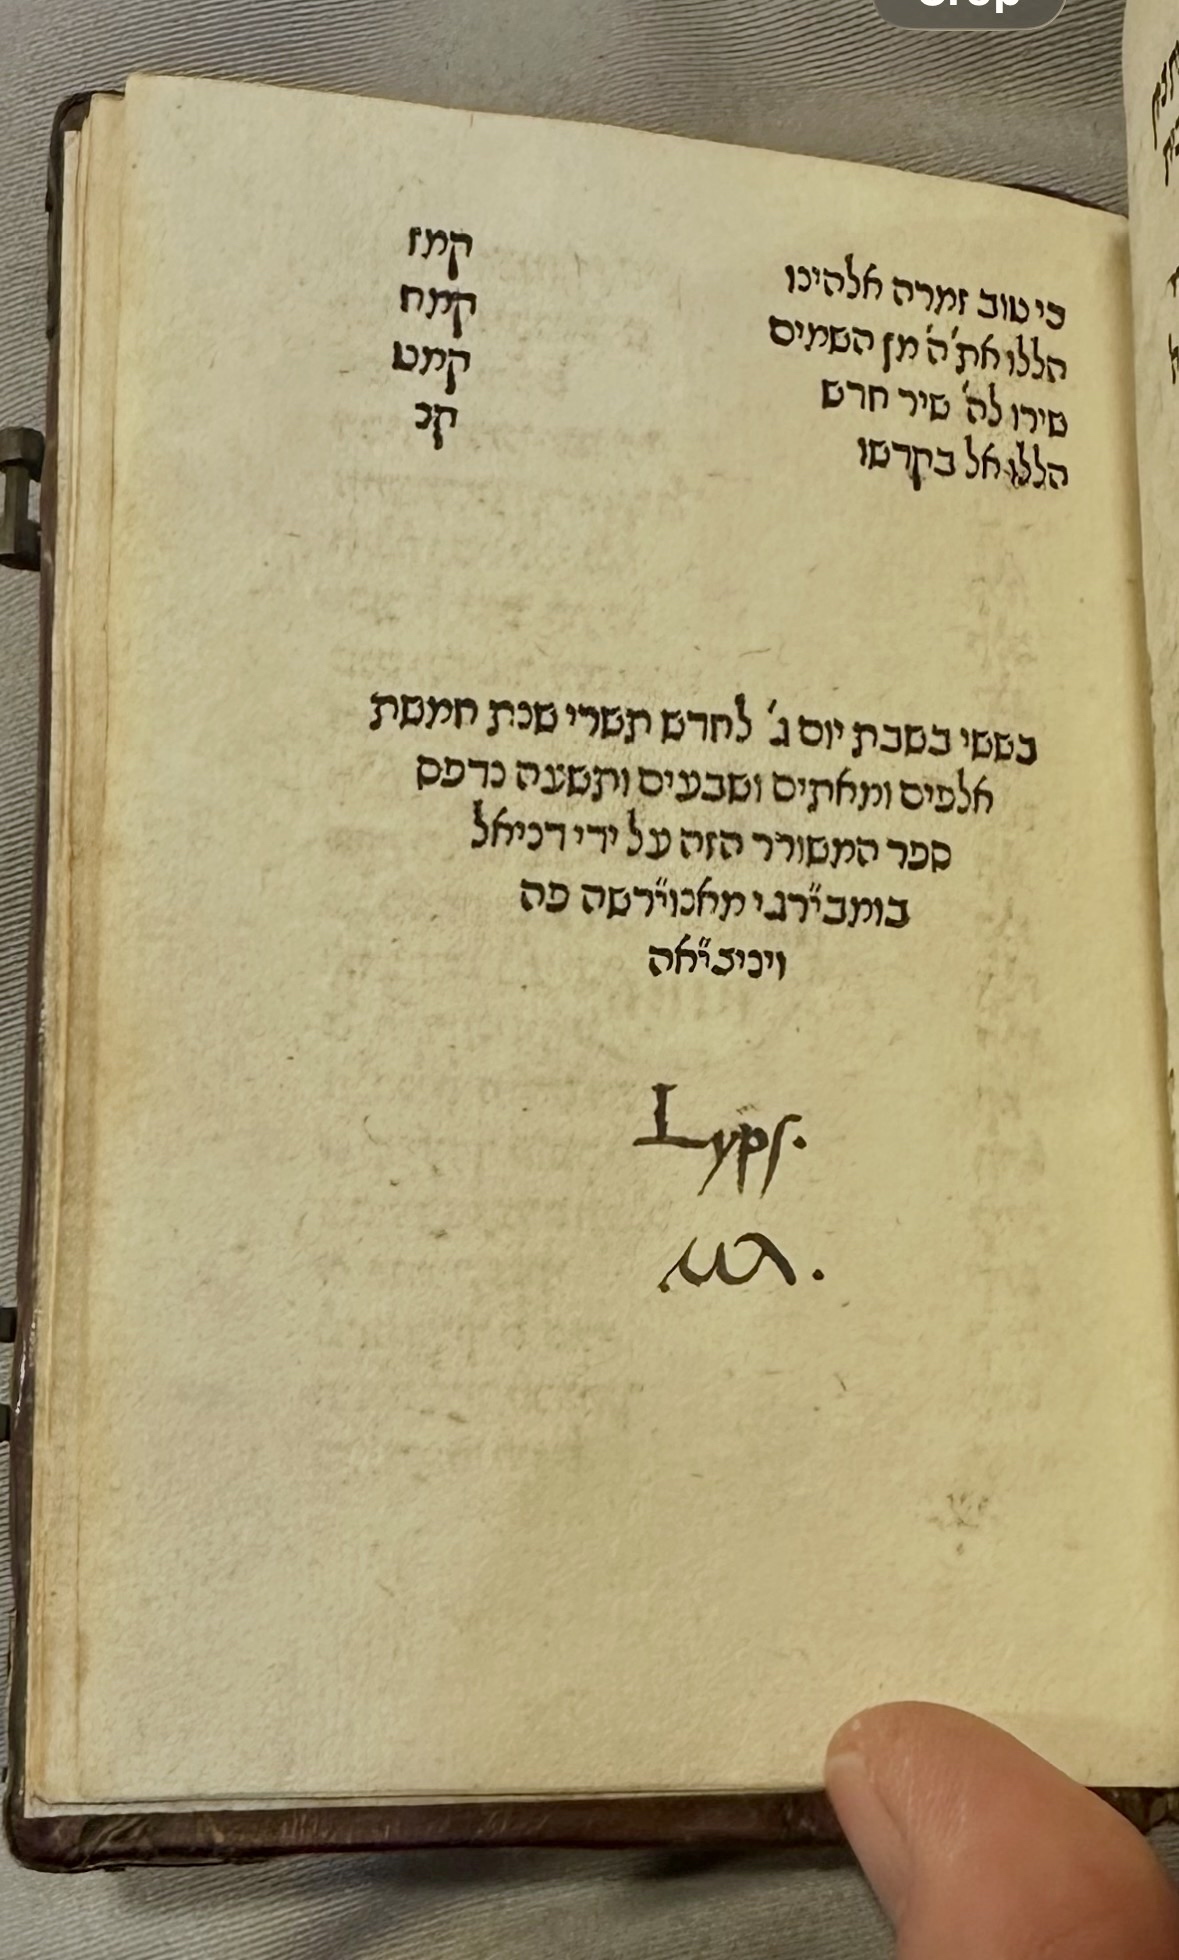 כי טוב זמרה אלהינו קמז
הללו את ה' מן השמים קמח
שירו לה' שיר חדש קמט
הללו אל בקדשו קנ
בששי בשבת יום ג' לחדש תשרי שנת חמשת
אלפים ומאתים ושבעים ותשעה נדפס
ספר המשורר הזה על ידי דניאל
בומבי״רגי מאנוי״רשה פה
ויניצי״אה
Lyps.